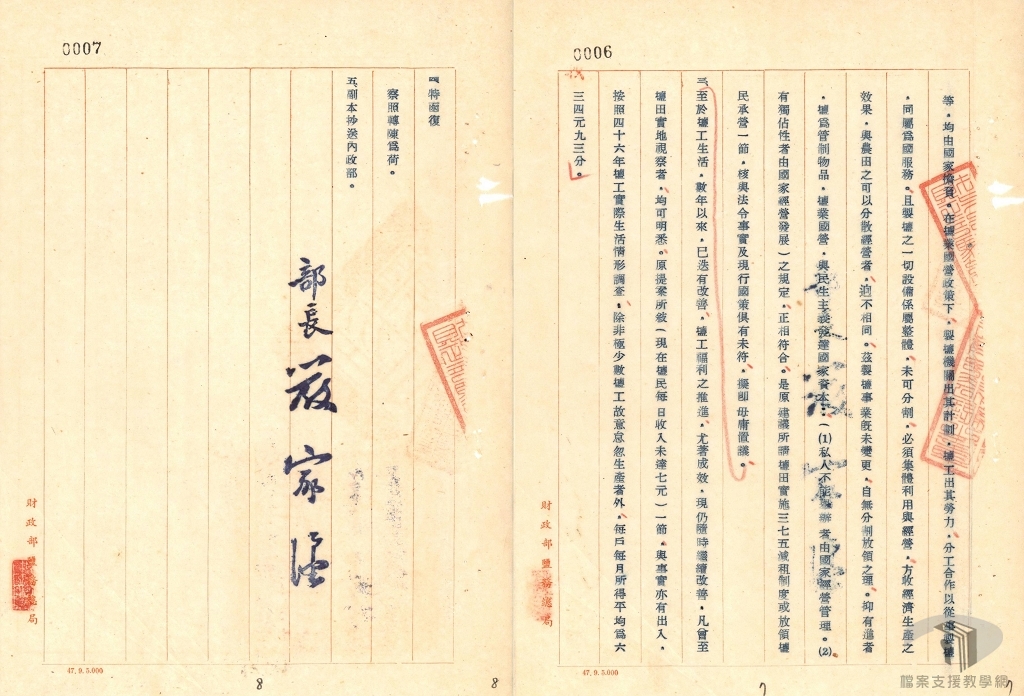 0006
等，均由國家擔負。在壚業國營政策下，製壚機關出其計劃，壚工出其勞力，分工合作以從事製壚
，同屬爲國服務。且製壚之一切設備係屬整體，未可分割，必須集體利用與經營，方收經濟生產之
效果，與農田之可以分散經營者，迥不相同。茲製壚事業旣未變更，自無分割放領之理。抑有進者
，壚爲管制物品，壚業國營，與民生主義發達國家資本：(1)私人不能辦者由國家經營管理。(2)
有獨佔性者由國家經營發展)之規定，正相符合。是原建議所請壚田實施三七五減租制度或放領壚
民承營一節，核與法令事實及現行國策俱有未符，擬卽毋庸置議。
三、至於壚工生活，數年以來，已迭有改善，壚工福利之推進，尤著成效，現仍隨時繼續改善，凡曾至
壚田實地視察者，均可明悉。原提案所敍(現在壚民每日收入未達七元)一節，與事實亦有出入，
按照四十六年壚工實際生活情形調查，除非極少數壚工故意怠忽生產者外，每戶每月所得平均爲六
三四元九三分。
財政部鹽務總局
47. 9. 5.000
7
0007
四、特函復
察照轉陳爲荷。
五、副本抄送內政部。
部長嚴家淦
財政部鹽務總局
47. 9. 5.000
8
8
檔案支援教學網
7